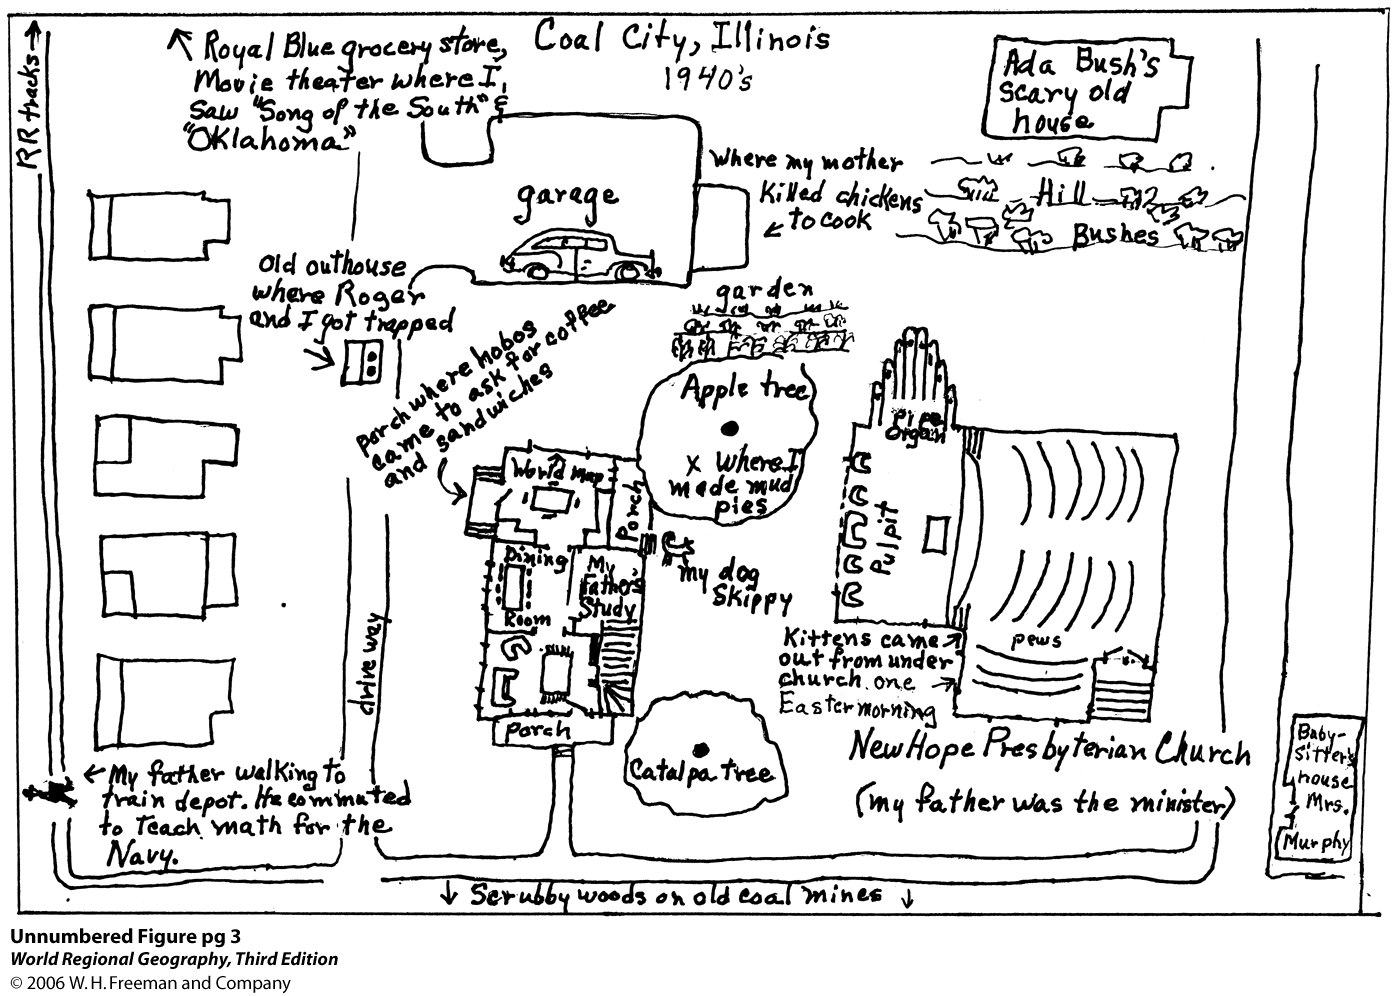 Coal City, Illinois
1940's
RR tracks
Royal Blue grocery store,
Movie theater where I
saw "Song of the South" &
"OKlahoma"
Ada Bush's
scary old
house
where my mother
Killed chickens
to cook
Hill
Bushes
garage
Old outhouse
where Roger
and I got trapped
garden
porch where hobos
came to ask for coffee
and sandwiches
Apple tree
x where I
made mud
pies
Pipe
Organ
World Map
Porch
Pulpit
Dining
Room
My
Father's
Study
my dog
Skippy
pews
Kittens came
out from under
church one
Easter morning
drive way
Porch
Catalpa Tree
New Hope Presbyterian Church
(my father was the minister)
Baby-
sitter's
house
Mrs.
Murphy
My father walking to
train depot. He commuted
to Teach math for the
Navy.
Scrubby woods on old coal mines
Unnumbered Figure pg 3
World Regional Geography, Third Edition
© 2006 W. H. Freeman and Company